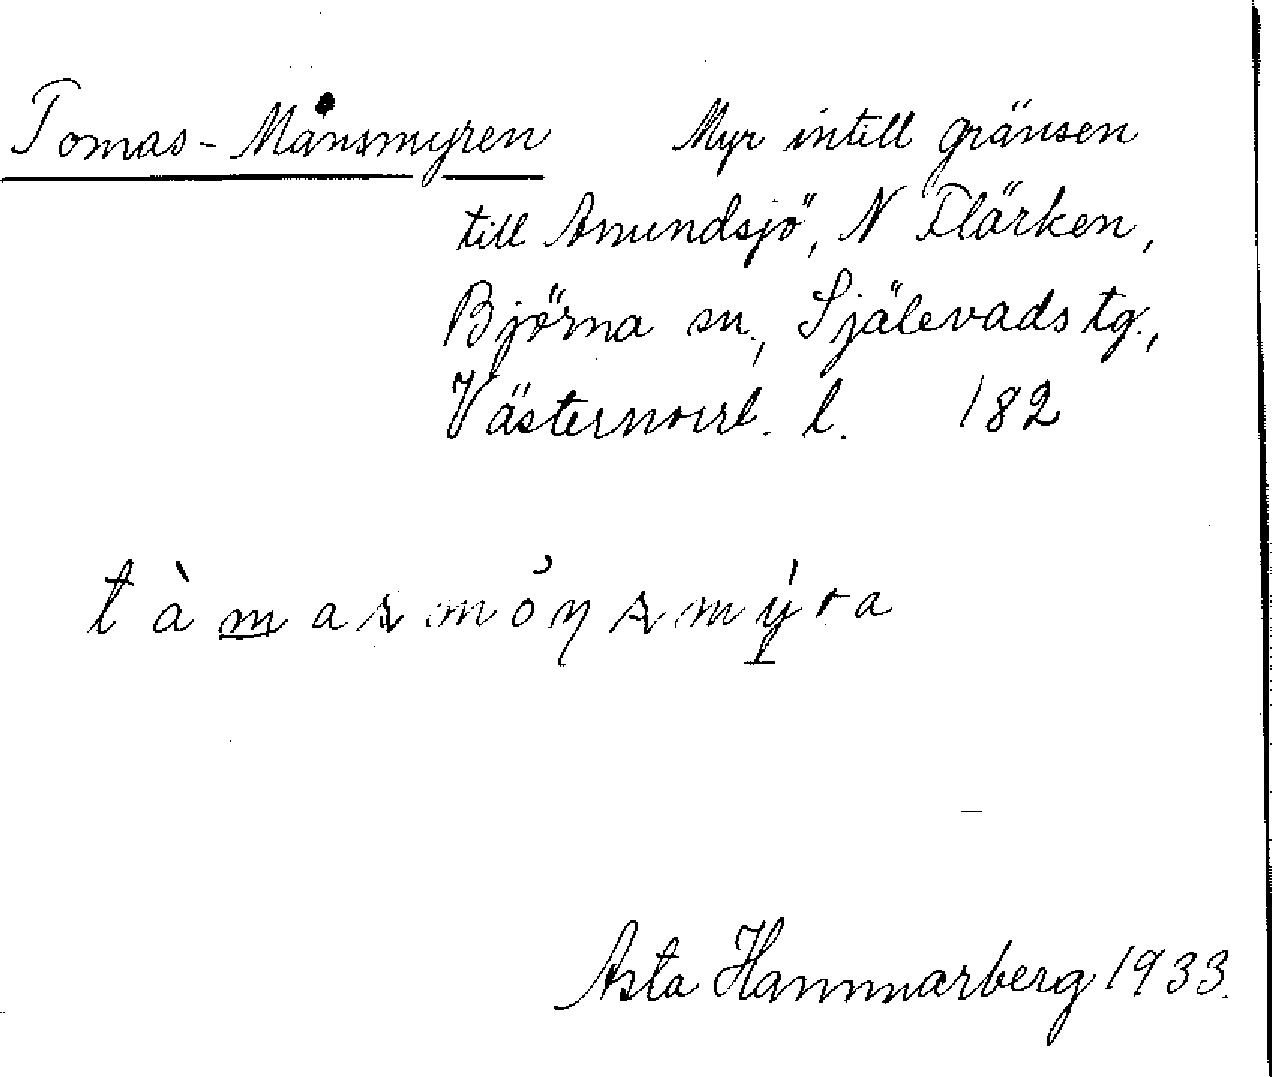 Tomas-Månsmyren Myr intill gränsen
till Anundsjö, N Flärken,
Björna sn., Själevads tg.,
Västernorrl. l. 182
tàmasmónsmýra
Asta Hammarberg 1933.